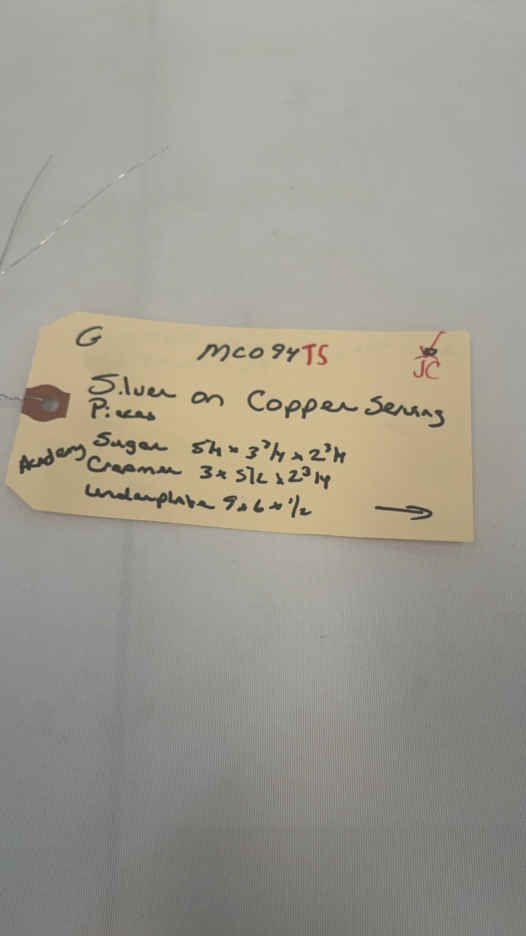 G
MC094TS
JC
Silver on Copper Serving
Pieces
Academy
Sugar x 3 3/4 x 2 3/4
Creamer 3 x 5 1/2 x 2 3/4
Underplate 9 x 6 x 1/2
→